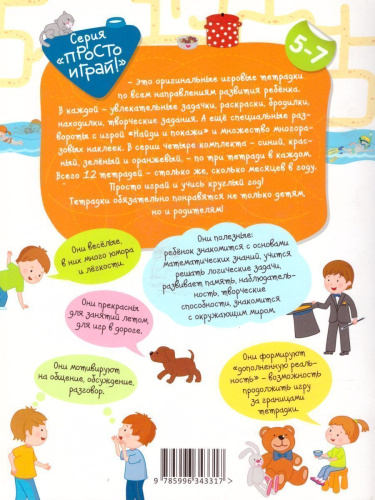 Серия
«ПРОСТО
ИГРАЙ!»
5-7
– Это оригинальные игровые тетрадки
по всем направлениям развития ребёнка.
В каждой – увлекательные задачки, раскраски, бродилки,
находилки, творческие задания. А ещё специальные раз-
вороты с игрой «Найди и покажи» и множество многора-
зовых наклеек. В серии четыре комплекта – синий, крас-
ный, зелёный и оранжевый, – по три тетради в каждом.
Всего 12 тетрадей – столько же, сколько месяцев в году.
Просто играй и учись круглый год!
Тетрадки обязательно понравятся не только детям,
но и родителям!
Они весёлые,
в них много юмора
и лёгкости.
Они полезные:
ребёнок знакомится с основами
математических знаний, учится
решать логические задачи,
развивает память, наблюдатель-
ность, творческие
способности, знакомится
с окружающим миром.
Они прекрасны
для занятий летом,
для игр в дороге.
Они мотивируют
на общение, обсуждение,
разговор.
Они формируют
«дополненную реаль-
ность» – возможность
продолжить игру
за границами
тетрадки.
9 785996 343317 >